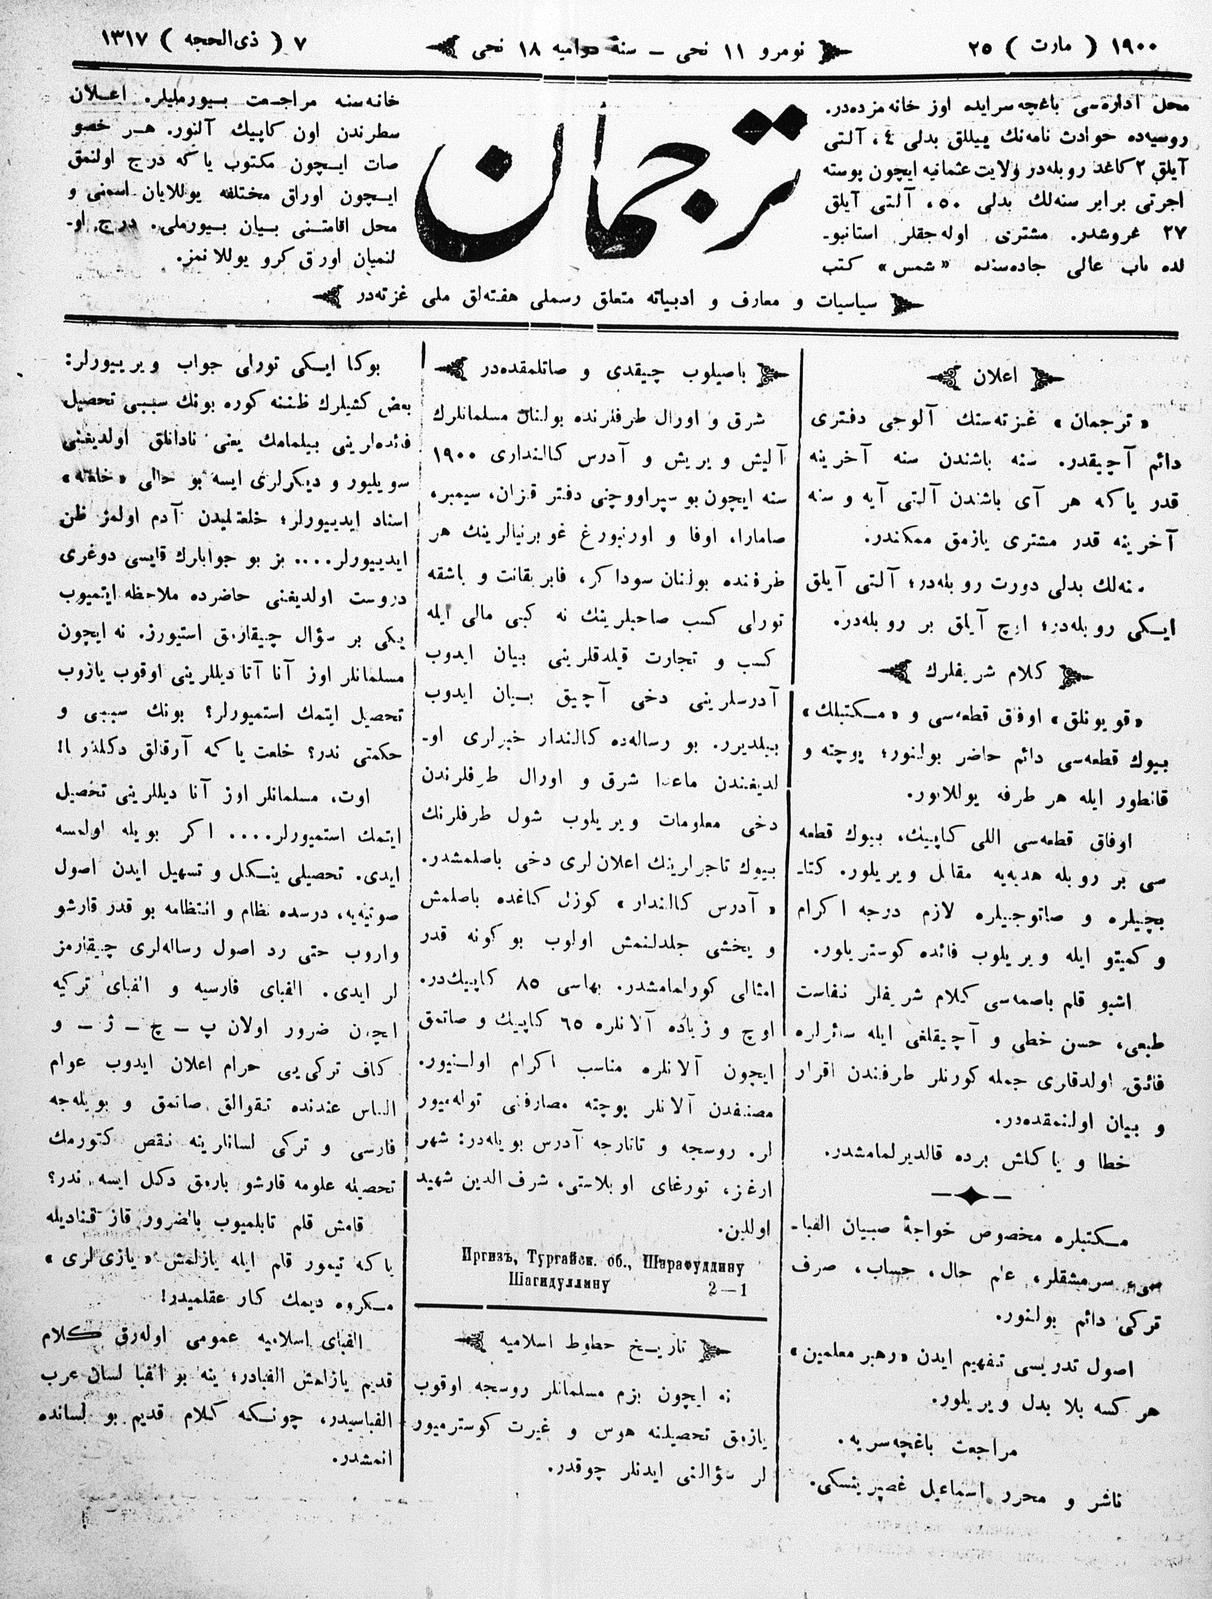 ١٩٠٠ ( مارت ) ٢٥
نومرو ١١ نحی – سنهٔ دوامیه ١٨ نحی
٧ ( ذی‌الحجه ) ١٣١٧
محل اداره‌سی باغچه‌سرایده اوز خانه‌مزده‌در.
روسیه‌ده حوادث نامه‌نك ییللق بدلی ٤، آلتی
آیلق ٢ كاغد روبله‌در ولایت عثمانیه ایچون پوسته
اجرتی برابر سنه‌لك بدلی ٥٠، آلتی آیلق
٢٧ غروشدر. مشتری اوله‌جقلر استانبو-
لده باب عالی جاده‌سنده «شمس» كتب
ترجمان
خانه‌سنه مراجعت بیورملیلر. اعلان
سطرندن اون كاپیك آلنور. هر خصو
صات ایچون مكتوب یاكه درج اولنمق
ایچون اوراق مختلفه یوللایان اسمنی و
محل اقامتنی بیان بیورملی. درج او-
لنمیان اورق كرو یوللانمز.
سیاسیات و معارف و ادبیاته متعلق رسملی هفته‌لق ملی غزته‌در
اعلان
«ترجمان» غزته‌سنك آلوجی دفتری
دائم آچیقدر. سنه باشندن سنه آخرینه
قدر یاكه هر آی باشندن آلتی آیه و سنه
آخرینه قدر مشتری یازمق ممكندر.
سنه‌لك بدلی دورت روبله‌در؛ آلتی آیلق
ایكی روبله‌در؛ اوچ آیلق بر روبله‌در.
كلام شریفلرك
«قویونلق» اوفاق قطعه‌سی و «مكتبلك»
بیوك قطعه‌سی دائم حاضر بولنور؛ پوچته و
قانطور ایله هر طرفه یوللانور.
اوفاق قطعه‌سی اللی كاپیك، بیوك قطعه
سی بر روبله هدیه‌یه مقابل ویریلور. كتا-
بچیلره و صاتوجیلره لازم درجه اكرام
و كمیتو ایله ویریلوب فائده كوستریلور.
اشبو قلم باصمه‌سی كلام شریفلر نفاست
طبعی، حسن خطی و آچیقلغی ایله سائرلره
فائق اولدقلری جمله كورنلر طرفندن اقرار
و بیان اولنمقده‌در.
خطا و یاكلش یرده قالدیرلمامشدر.
مكتبلره مخصوص خواجهٔ صبیان الفبا-
سی، سرمشقلر، علم حال، حساب، صرف
تركی دائم بولنور.
اصول تدریسی تفهیم ایدن «رهبر معلمین»
هر كسه بلا بدل ویریلور.
مراجعت باغچه‌سریه.
ناشر و محرر اسماعیل غصپرینسكی.
باصیلوب چیقدی و صاتلمقده‌در
شرق و اورال طرفلرنده بولنان مسلمانلرك
آلیش ویریش و آدرس كالنداری ١٩٠٠
سنه ایچون بو سپراووچنی دفتر قزان، سیمبر،
صامارا، اوفا و اورنبورغ غوبرنیالرینك هر
طرفنده بولنان سوداكر، فابریقانت و باشقه
تورلی كسب صاحبلرینك نه كبی مالی ایله
كسب و تجارت قیلدقلرینی بیان ایدوب
آدرسلرینی دخی آچیق بیان ایدوب
بیلدیرر. بو رساله‌ده كالندار خبرلری او-
لدیغندن ماعدا شرق و اورال طرفلرندن
دخی معلومات ویریلوب شول طرفلرنك
بیوك تاجرلرینك اعلان لری دخی باصلمشدر.
«آدرس كالندار» كوزل كاغده باصلمش
و یخشی جلدلنمش اولوب بو كونه قدر
امثالی كورلمامشدر. بهاسی ٨٥ كاپیك‌در.
اوچ و زیاده آلانلره ٦٥ كاپیك و صاتمق
ایچون آلانلره مناسب اكرام اولنیور.
مصنفدن آلانلر پوچته مصارفنی توله‌میور
لر. روسجه و تاتارجه آدرس بویله‌در: شهر
ارغز، تورغای اوبلاستی، شرف الدین شهید
اوللین.
Иргизъ, Тургайск. об., Шарафуддину
Шагидуллину 2—1
تاریخ خطوط اسلامیه
نه ایچون بزم مسلمانلر روسجه اوقوب
یازمق تحصیلنه هوس و غیرت كوسترمیور
لر سؤالنی ایدنلر چوقدر.
بوكا ایكی تورلی جواب ویرییورلر:
بعض كشیلرك ظننه كوره بونك سببی تحصیل
فائده‌لرینی بیلمامك یعنی نادانلق اولدیغنی
سویلیور و دیكرلری ایسه بو حالی «خلعته»
اسناد ایدییورلر؛ خلعتلیدن آدم اولمز ظن
ایدییورلر.... بز بو جوابلرك قایسی دوغری
دروست اولدیغنی حاضرده ملاحظه ایتمیوب
یكی بر سؤال چیقارمق استیورز. نه ایچون
مسلمانلر اوز آنا آتا دیللرینی اوقوب یازوب
تحصیل ایتمك استمیورلر؟ بونك سببی و
حكمتی ندر؟ خلعت یاكه آرقنلق دكلدر ا!
اوت، مسلمانلر اوز آنا دیللرینی تحصیل
ایتمك استمیورلر.... اكر بویله اولمسه
ایدی. تحصیلی ینكل و تسهیل ایدن اصول
صوتیه‌یه، درسده نظام و انتظامه بو قدر قارشو
واروب حتی رد اصول رساله‌لری چیقارمز
لر ایدی. الفبای فارسیه و الفبای تركیه
ایچون ضرور اولان پ – چ – ژ – و
كاف تركی‌یی حرام اعلان ایدوب عوام
الناس عندنده تقوالق صاتمق و بویله‌جه
فارسی و تركی لسانلرینه نقص كتورمك
تحصیله علومه قارشو بارمق دكل ایسه ندر؟
قامش قلم تابلمیوب بالضرور قاز قنادیله
یاكه تیمور قلم ایله یازلمش «یازی‌لری»
مكروه دیمك كار عقلمیدر!
الفبای اسلامیه عمومی اوله‌رق كلام
قدیم یازلمش الفبادر؛ ینه بو الفبا لسان عرب
الفباسیدر، چونكه كلام قدیم بو لسانده
انمشدر.